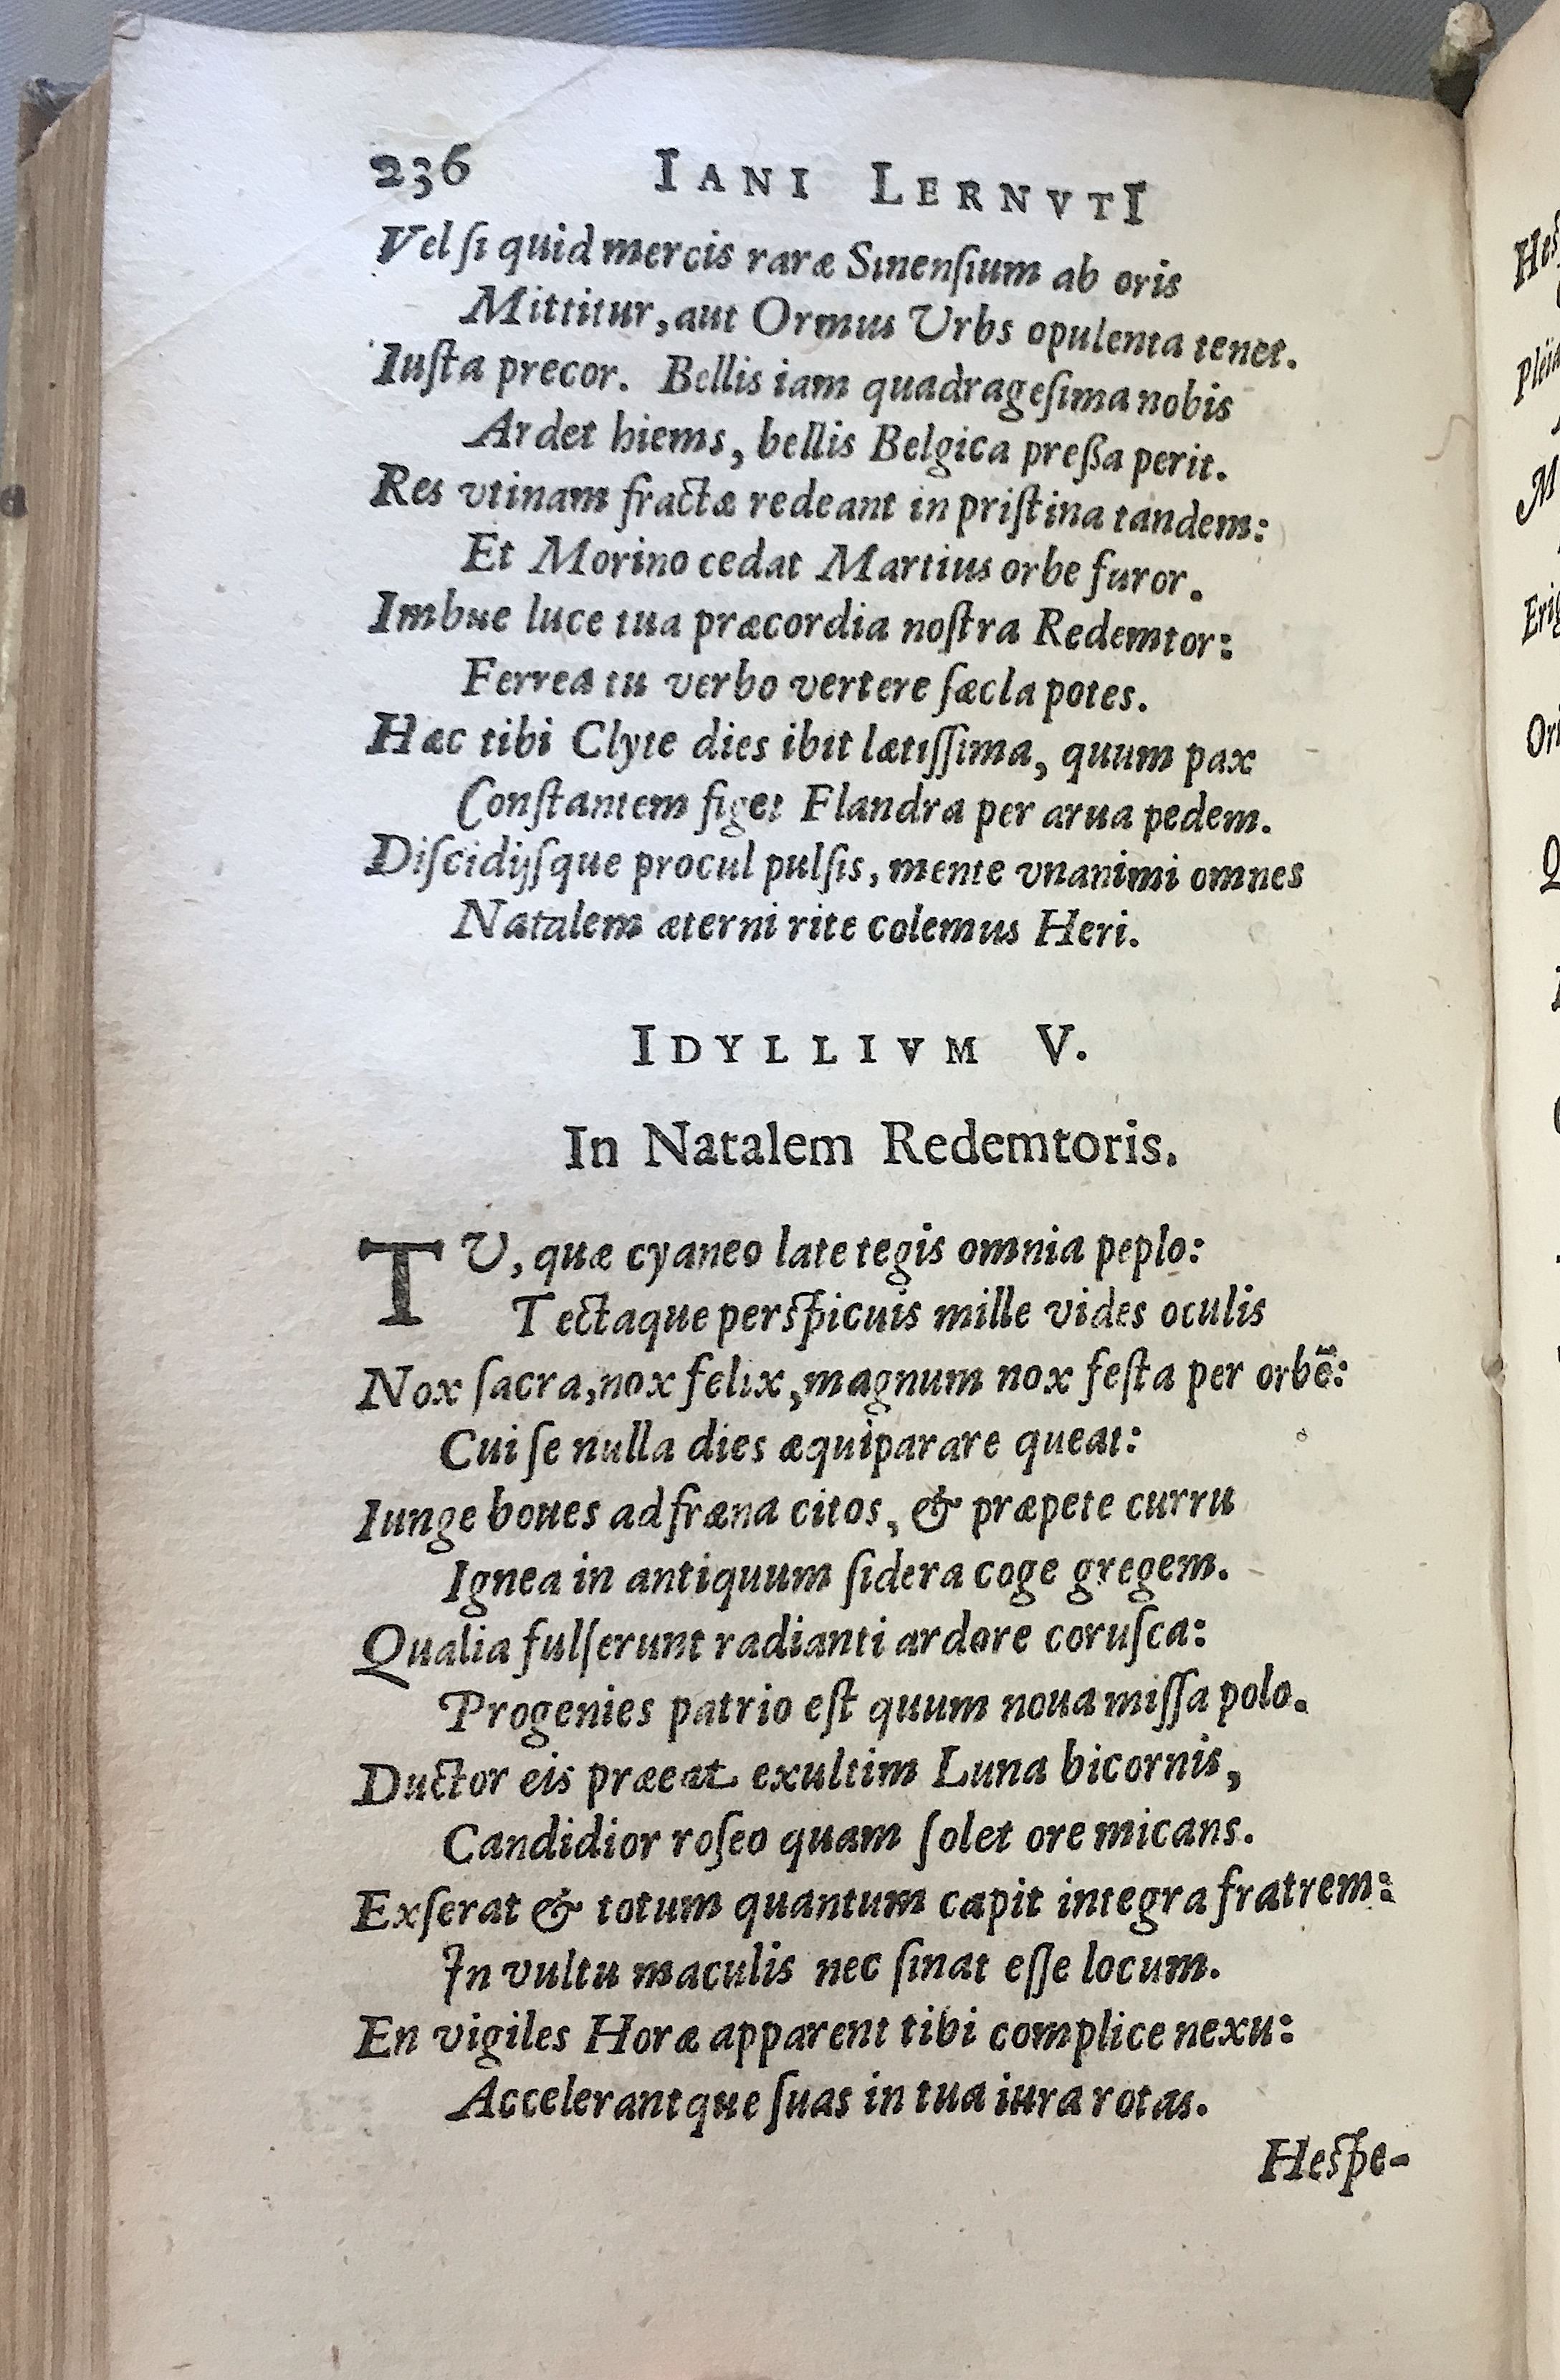 236 IANI LERNVTI
Vel ſi quid mercis raræ Sinenſium ab oris
Mittitur, aut Ormus Urbs opulenta tenet.
Iuſta precor. Bellis iam quadrageſima nobis
Ardet hiems, bellis Belgica preßa perit.
Res vtinam fractæ redeant in priſtina tandem:
Et Morino cedat Martius orbe furor.
Imbue luce tua præcordia noſtra Redemtor:
Ferrea tu verbo vertere ſæcla potes.
Hæc tibi Clyte dies ibit lætiſſima, quum pax
Conſtantem figet Flandra per arua pedem.
Diſcidijſque procul pulſis, mente vnanimi omnes
Natalem æterni rite colemus Heri.
IDYLLIVM V.
In Natalem Redemtoris.
TU, quæ cyaneo late tegis omnia peplo:
Tectaque perſpicuis mille vides oculis
Nox ſacra, nox felix, magnum nox feſta per orbē:
Cui ſe nulla dies æquiparare queat:
Iunge boues ad fræna citos, & præpete curru
Ignea in antiquum ſidera coge gregem.
Qualia fulſerunt radianti ardore coruſca:
Progenies patrio eſt quum noua miſſa polo.
Ductor eis præeat exultim Luna bicornis,
Candidior roſeo quam ſolet ore micans.
Exſerat & totum quantum capit integra fratrem:
In vultu maculis nec ſinat eſſe locum.
En vigiles Horæ apparent tibi complice nexu:
Accelerantque ſuas in tua iura rotas.
Heſpe-